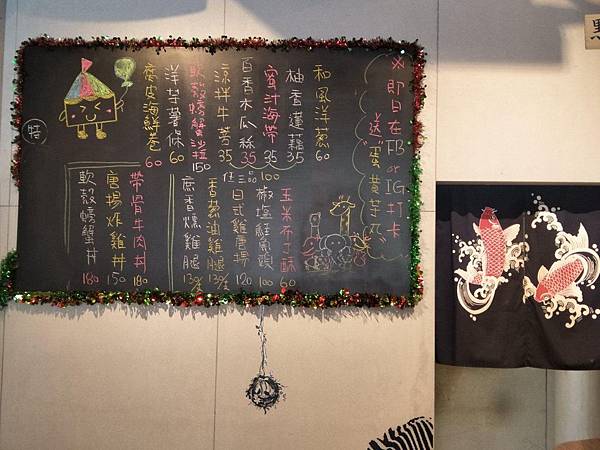 ※即日在FB or IG.打卡
送"蛋黃芋丸"
和風洋蔥 60
柚香蓮藕 35
蜜汁海帶 35
百香木瓜絲 35
涼拌牛蒡 35
任三品 100
軟殼螃蟹沙拉 150
洋芋薯條 60
腐皮海鮮卷 60
特
玉米不丁酥 60
椒塩魷魚頭 100
日式雞唐揚 120
香蔥油雞腿
蔗香燻雞腿
帶骨牛肉丼 180
唐揚炸雞丼 150
軟殼螃蟹丼 180